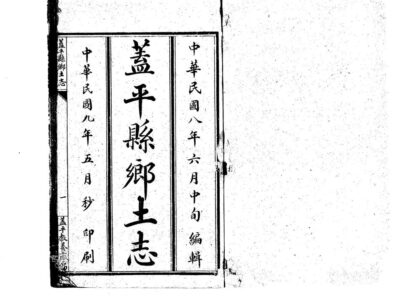 中華民國八年六月中旬編輯
蓋平縣鄉土志
中華民國九年五月秒印刷
蓋平縣鄉土志
一